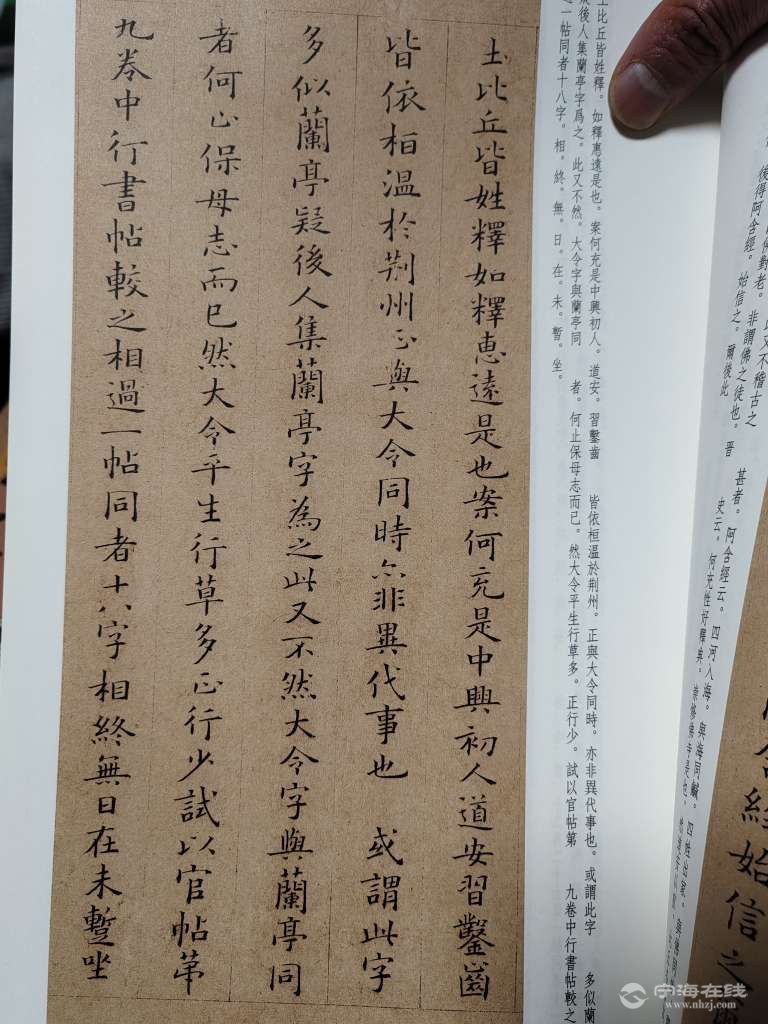 含經始信之
不稽古之
對老。非謂佛之徒也。晋
後得阿含經。始信之。爾後此
甚者。阿含經云。四河入海。與海同鹹。四姓出家。與佛同
史云。何充性好釋典。崇修佛寺是也。
士比丘皆姓釋。如釋惠遠是也。案何充是中興初人。道安。習鑿齒
皆依桓溫於荊州。正與大令同時。亦非異代事也。或謂此字
多似蘭
後人集蘭亭字爲之。此又不然。大令字與蘭亭同
者。何止保母志而已。然大令平生行草多。正行少。試以官帖第
九卷中行書帖較之
一帖同者十八字。相。終。無。日。在。未。暫。坐。
士比丘皆姓釋如釋惠遠是也案何充是中興初人道安習鑿齒
皆依桓溫於荊州正與大令同時亦非異代事也 或謂此字
多似蘭亭疑後人集蘭亭字為之此又不然大令字與蘭亭同
者何止保母志而已然大令平生行草多正行少試以官帖第
九卷中行書帖較之相過一帖同者十八字相終無日在未蹔坐
宁海在线
www.nhzj.com